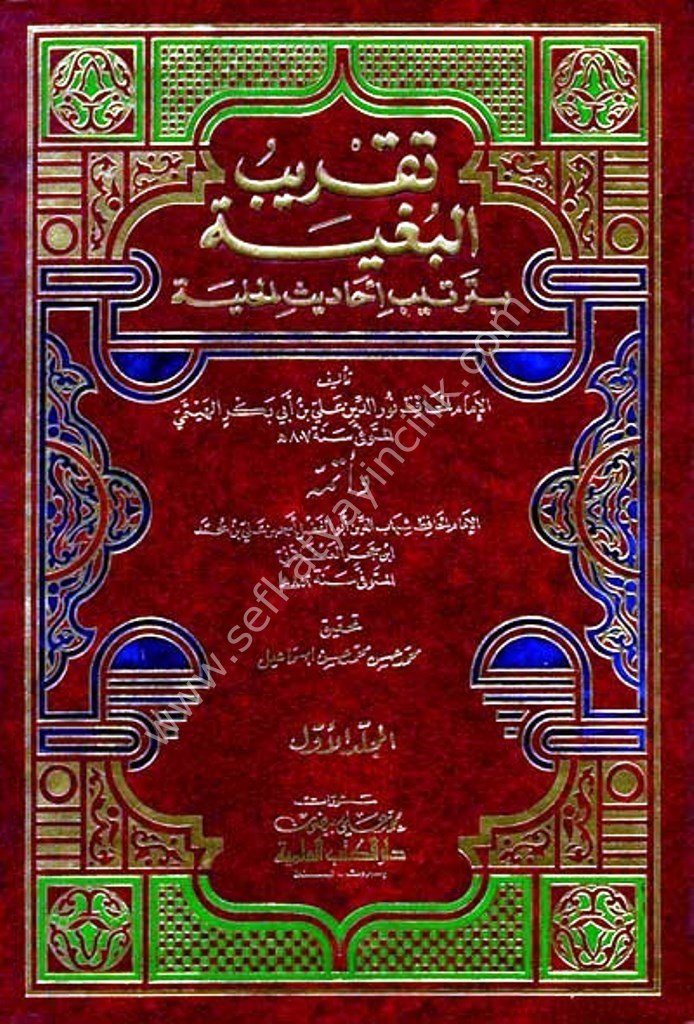 تقريب
البغية
بترتيب أحاديث الحلية
تأليف
الإمام الحافظ نور الدين علي بن أبي بكر الهيثمي
المتوفى سنة ٨٠٧ هـ
الإمام الحافظ شهاب الدين أبي الفضل أحمد بن علي بن محمد
ابن حجر
المتوفى سنة
تحقيق
محمد حسن محمد حسن إسماعيل
المجلد الأول
منشورات
محمد علي بيضون
دار الكتب العلمية
بيروت - لبنان
www.sefkatyayincilik.com